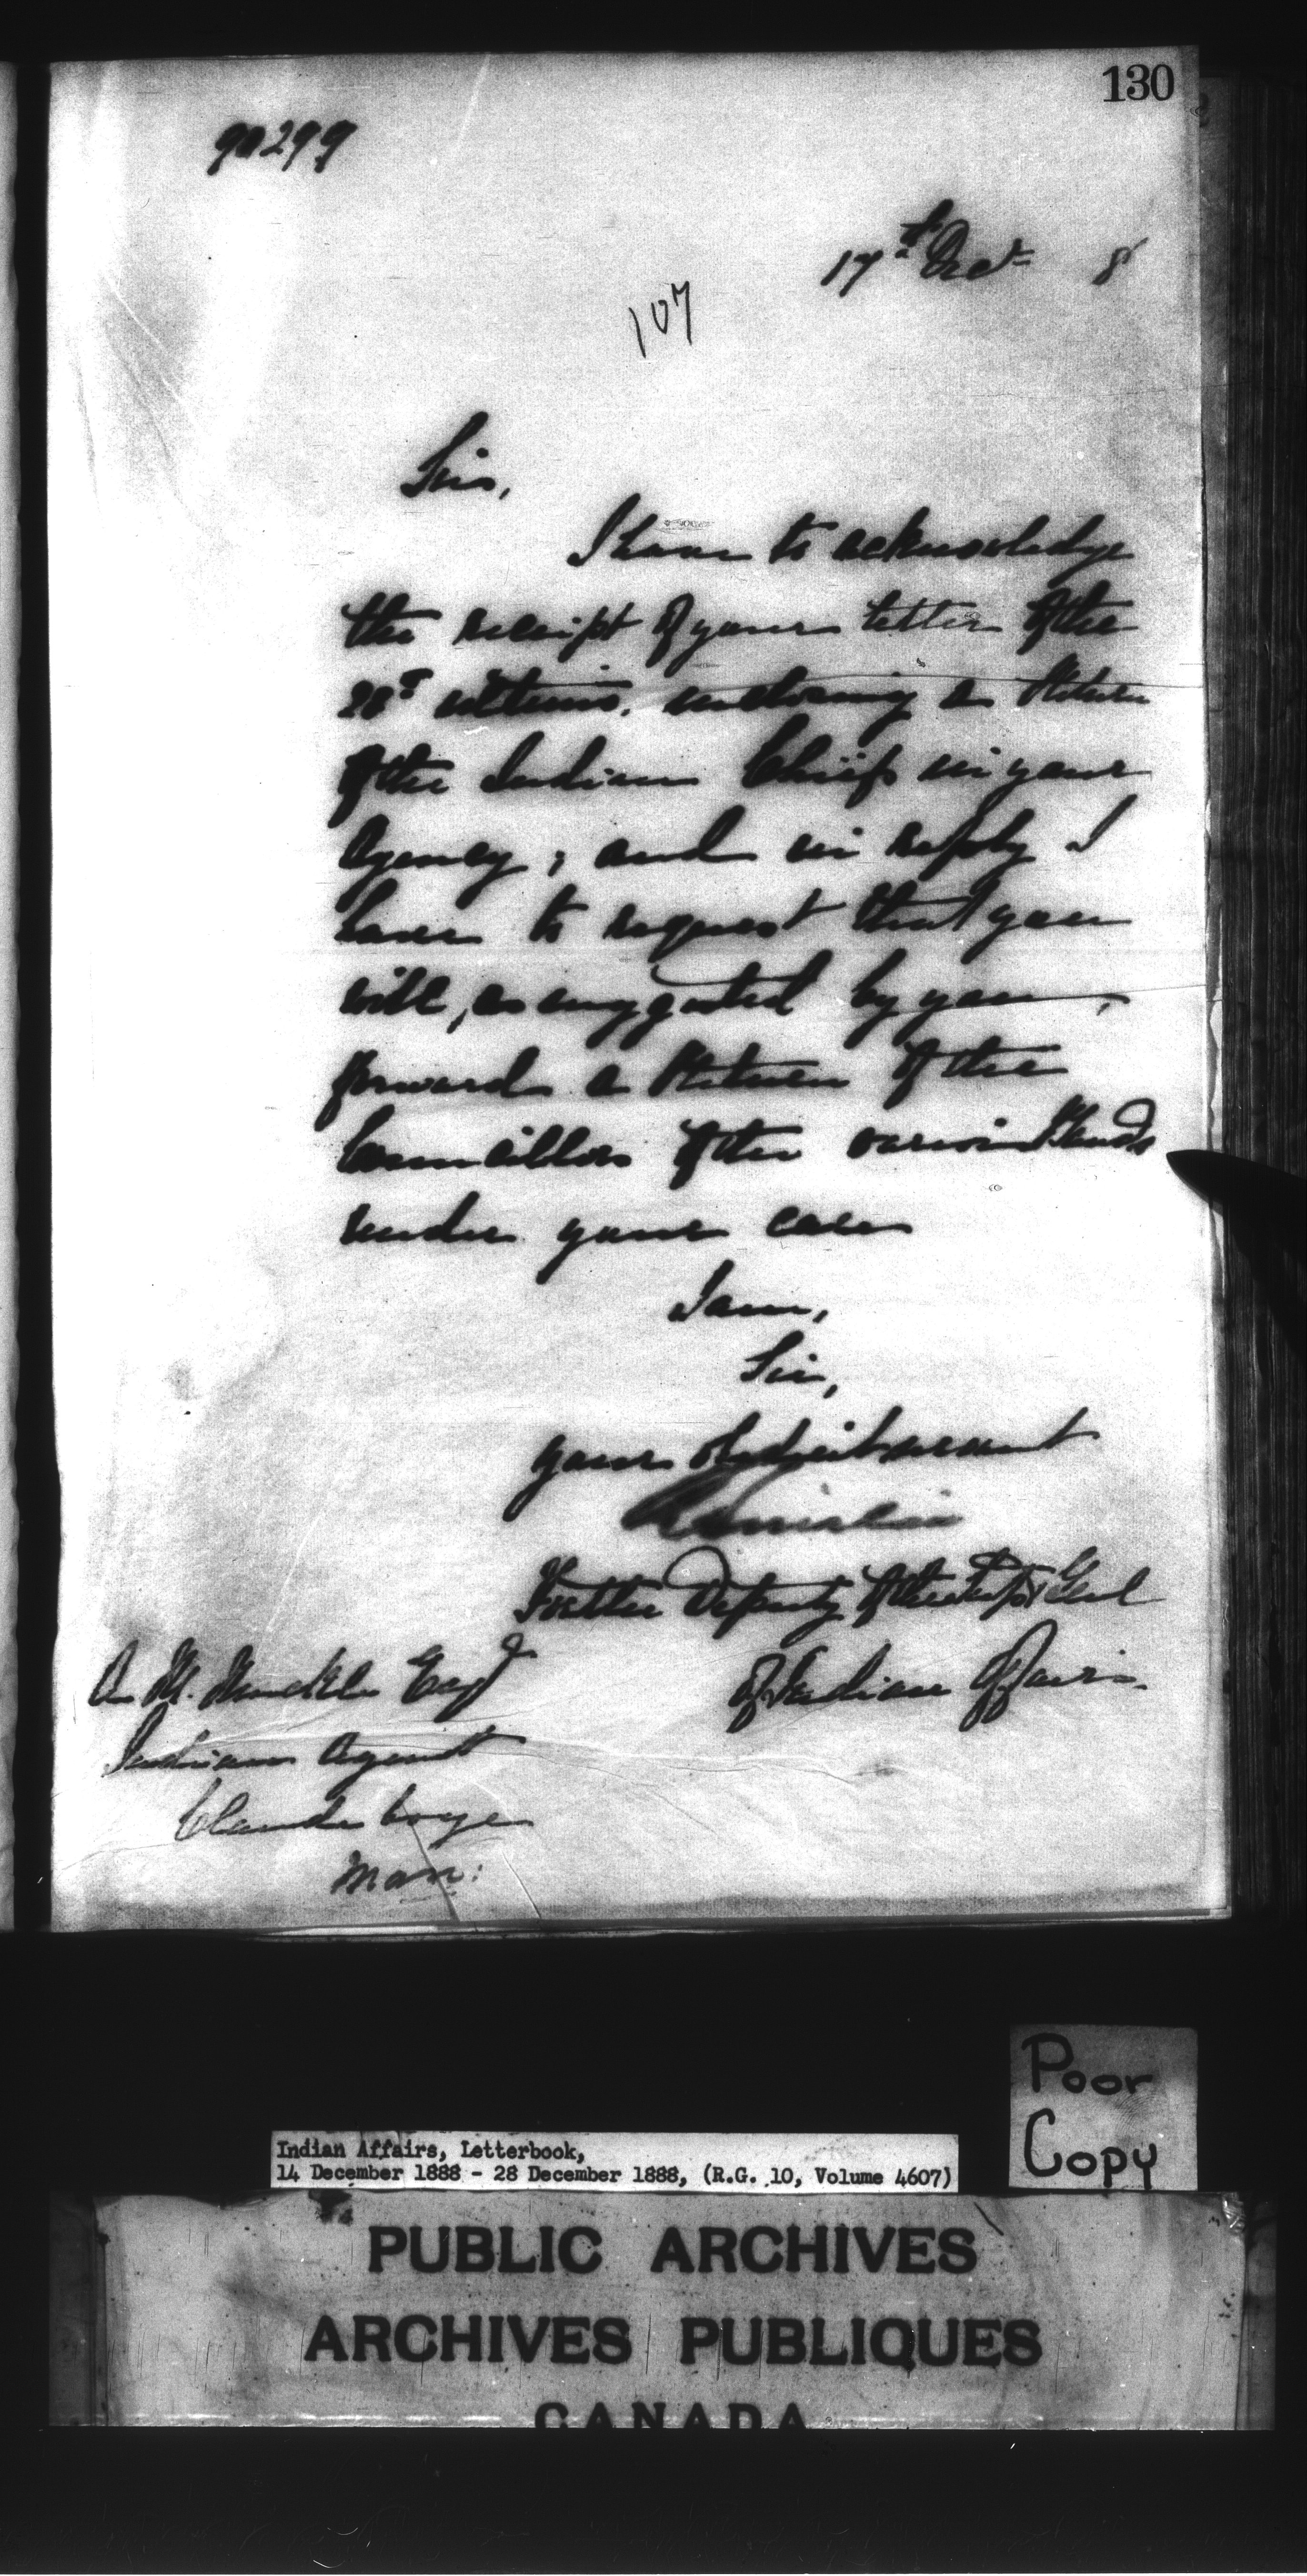 130
90299
17th Dec 8
107
Sir,
I have to acknowledge
the receipt of your letter of the
28th ultimo, enclosing a Return
of the Indian Chiefs in your
Agency; and in reply I
have to request that you
will, as suggested by you,
forward a Return of the
Councillors of the various Bands
under your care
I am,
Sir,
Your obedient servant
For the Deputy of the Supt Genl
of Indian Affairs.
A. M. Muckle Esqr
Indian Agent
Clandeboye
Man:
Poor
Copy
Indian Affairs, Letterbook,
14 December 1888 - 28 December 1888, (R.G. 10, Volume 4607)
PUBLIC ARCHIVES
ARCHIVES PUBLIQUES
CANADA